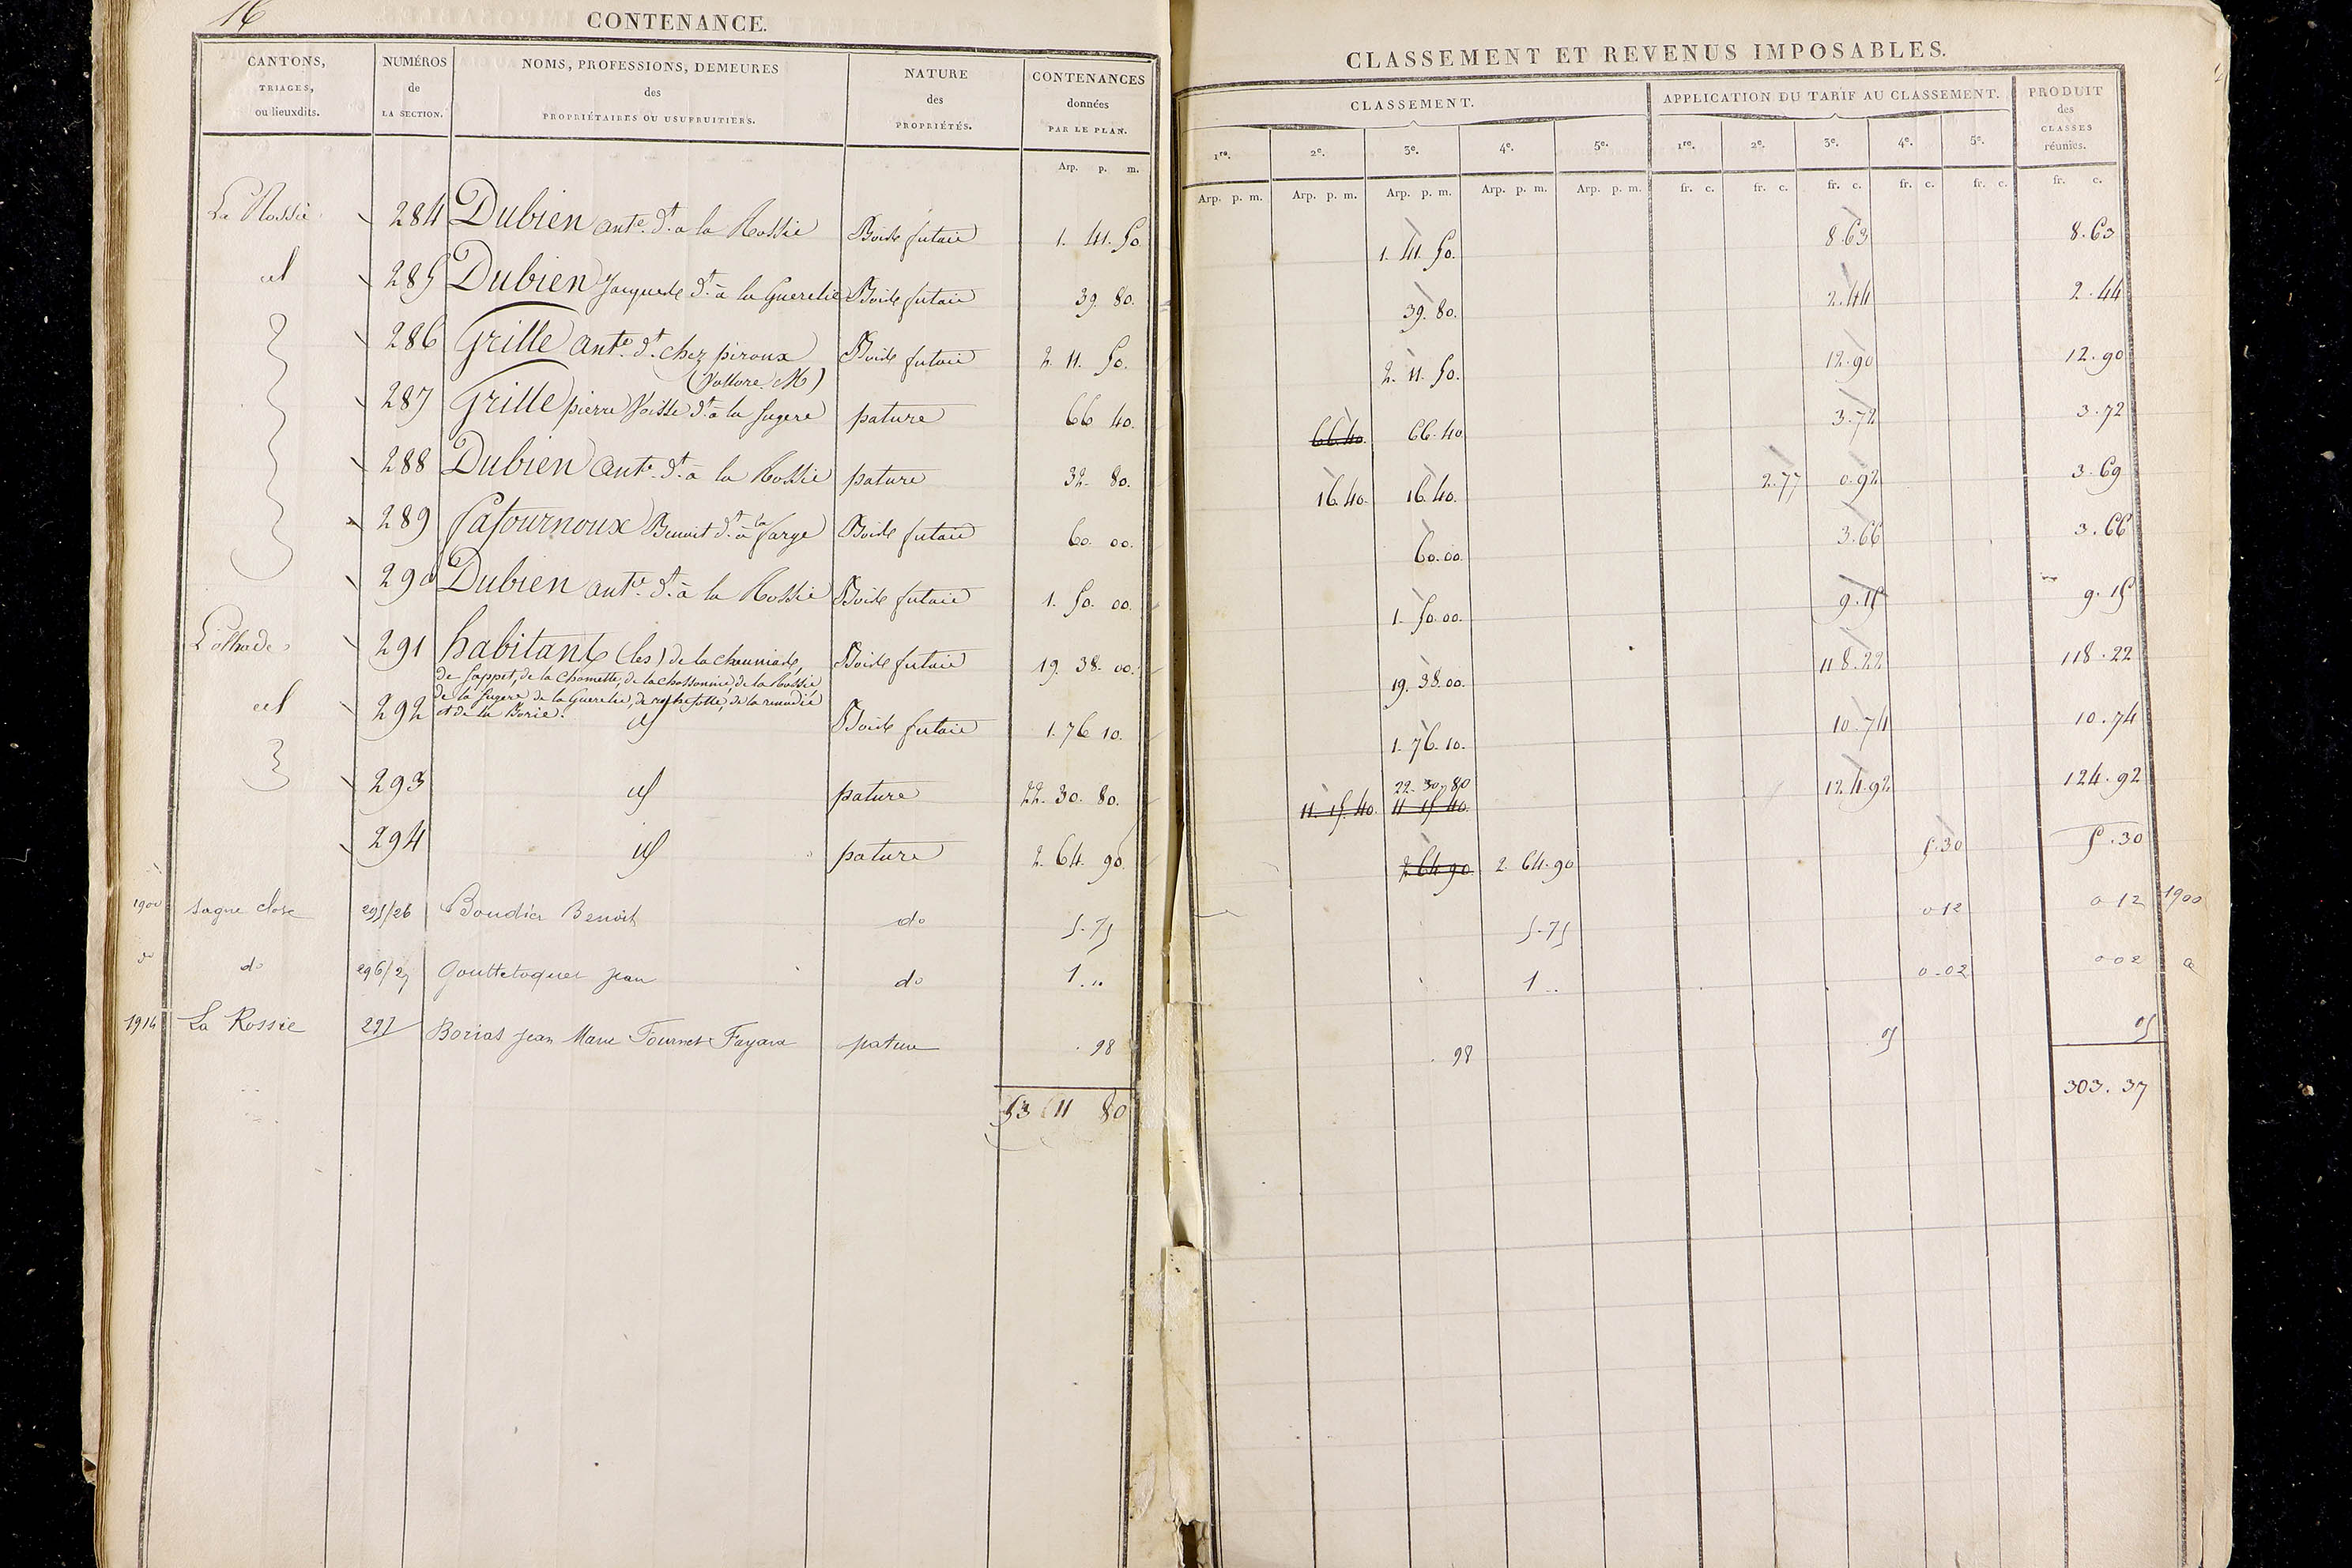 16
CONTENANCE.
CANTONS, TRIAGES, ou lieuxdits.
NUMÉROS de LA SECTION.
NOMS, PROFESSIONS, DEMEURES des PROPRIÉTAIRES OU USUFRUITIERS.
NATURE des PROPRIÉTÉS.
CONTENANCES données PAR LE PLAN.
Arp. p. m.
CLASSEMENT ET REVENUS IMPOSABLES.
CLASSEMENT.
APPLICATION DU TARIF AU CLASSEMENT.
PRODUIT des CLASSES réunies.
1re. 2e. 3e. 4e. 5e. 1re. 2e. 3e. 4e. 5e.
Arp. p. m. Arp. p. m. Arp. p. m. Arp. p. m. Arp. p. m. fr. c. fr. c. fr. c. fr. c. fr. c. fr. c.
La Rossie 284 Dubien ante. dt. a la Rossie Boide futaie 1. 41. 50 1. 41. 50. 8.63 8.63
id 285 Dubien Jacques dt. à la Guerelie Boide futaie 39. 80. 39. 80. 2.44 2.44
286 Grille ante. dt. chez piroux Boide futaie 2. 11. 50. 2. 11. 50. 12.90 12.90
(Vollore M)
287 Grille pierre dt. à la fugere pature 66 40. 66.40. 66.40 3.72 3.72
288 Dubien ante. dt. à la Rossie pature 32. 80. 16.40. 16.40. 2.77 0.92 3.69
289 Pafournoux Benoit dt. à la farge Boide futaie 60. 00. 60.00. 3.66 3.66
290 Dubien ante. dt. à la Rossie Boide futaie 1. 50. 00. 1. 50.00. 9.15 9.15
291 habitants (les) de la chauniade, Boide futaie 19. 38. 00. 19. 38.00. 118.22 118.22
de sappet, de la Chomette, de la chossonnie, de la Rossie
de la fugere de la Guerelie, de la renodie
et de la Borie.
id 292 id Boide futaie 1. 76 10. 1. 76.10. 10.74 10.74
293 id pature 22. 30. 80. 11. 15. 40. 11 15 40. 22. 30. 80 124.92 124.92
294 id pature 2. 64. 90. 2 64 90. 2. 64.90 5.30 5.30
1900 sagne close 295/26 Boudier Benoit do 5-75 5-75 0 12 0 12 1900
do do 296/27 Gouttetoquet jean do 1 .. 1 .. 0-02 0 02
1914 La Rossie 297 Borias jean Marie Fournet Fayard pature 98 98 05 05
53 11 80
303. 37